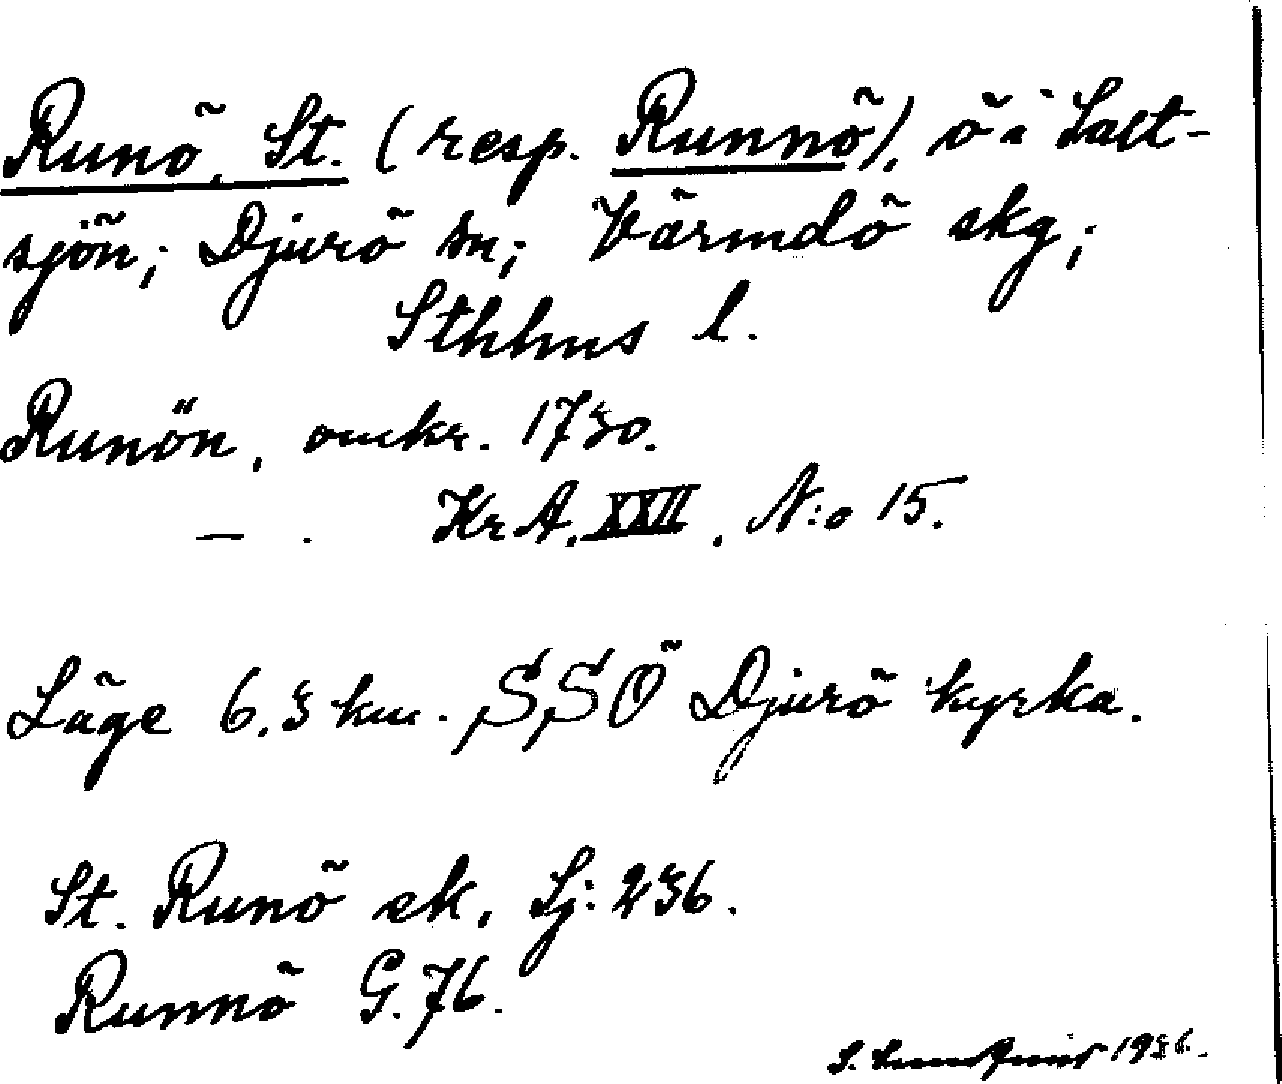 Runö, St. (resp. Runnö), ö i Salt-
sjön; Djurö sn; Värmdö skg;
Sthlms l.
Runön, omkr. 1730.
— . KrA. XXII. N:o 15.
Läge 6.3 km. SSÖ Djurö kyrka.
St. Runö ek, Sj: 236.
Runnö G. 76.
S. Lundquist 1936.